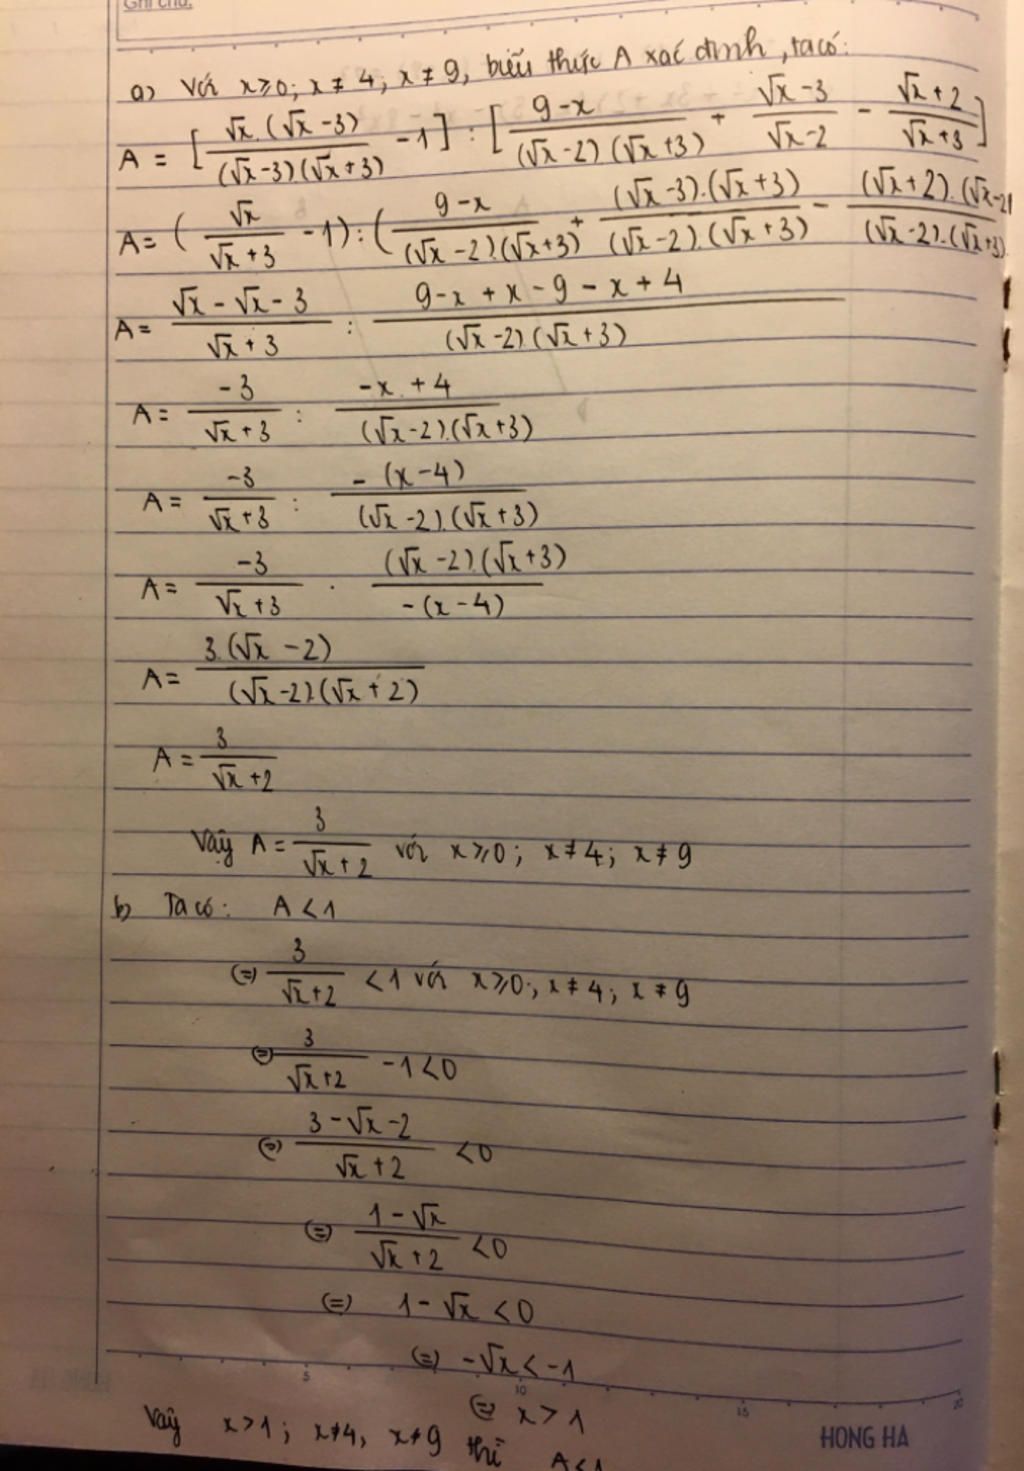 Ghi chú:
a) Với x ≥ 0; x ≠ 4; x ≠ 9, biểu thức A xác định, ta có:
A = [√x.(√x - 3)/(√x - 3).(√x + 3) - 1] : [9 - x/(√x - 2)(√x + 3) + √x - 3/√x - 2 - √x + 2/√x + 3]
A = (√x/√x + 3 - 1) : (9 - x/(√x - 2).(√x + 3) + (√x - 3).(√x + 3)/(√x - 2).(√x + 3) - (√x + 2).(√x - 2)/(√x - 2).(√x + 3)
A = √x - √x - 3/√x + 3 : 9 - x + x - 9 - x + 4/(√x - 2).(√x + 3)
A = -3/√x + 3 : -x + 4/(√x - 2).(√x + 3)
A = -3/√x + 3 : -(x - 4)/(√x - 2).(√x + 3)
A = -3/√x + 3 . (√x - 2).(√x + 3)/-(x - 4)
A = 3.(√x - 2)/(√x - 2).(√x + 2)
A = 3/√x + 2
Vậy A = 3/√x + 2 với x ≥ 0; x ≠ 4; x ≠ 9
b) Ta có: A < 1
(=) 3/√x + 2 < 1 với x ≥ 0; x ≠ 4; x ≠ 9
(=) 3/√x + 2 - 1 < 0
(=) 3 - √x - 2/√x + 2 < 0
(=) 1 - √x/√x + 2 < 0
(=) 1 - √x < 0
(=) -√x < -1
5 10 15 20
(=) x > 1
Vậy x > 1; x ≠ 4, x ≠ 9 thì A < 1
HONG HA